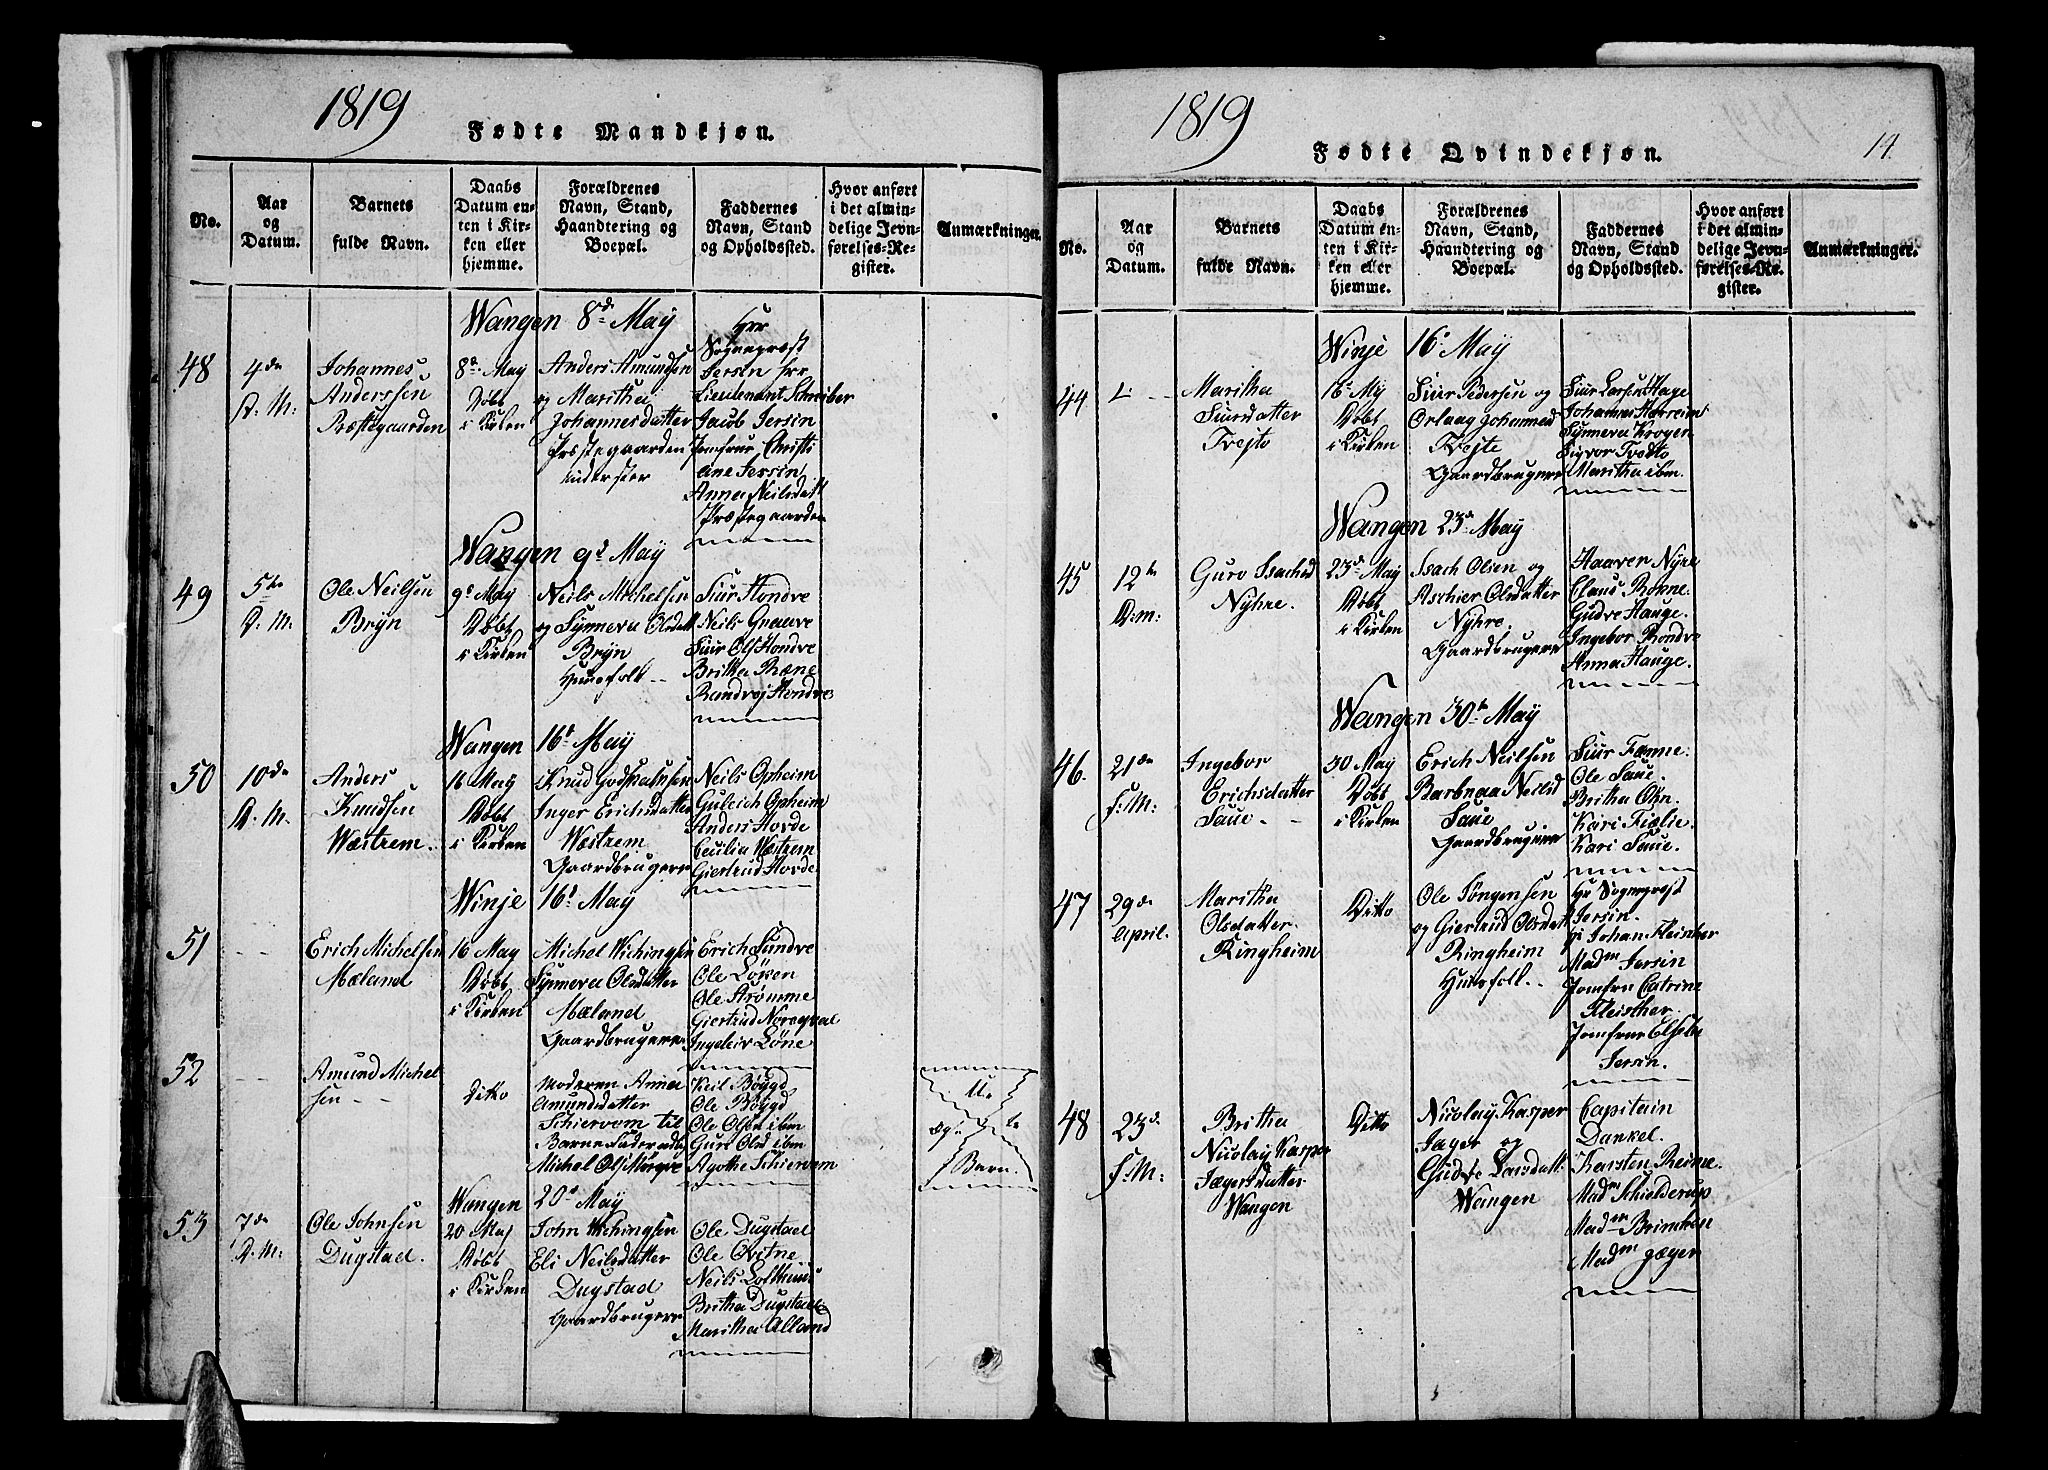 1819
Fødte Mandkjøn.
No.
Aar
og
Datum.
Barnets
fulde Navn.
Daabs
Datum en-
ten i Kir-
ken eller
hjemme.
Forældrenes
Navn, Stand,
Haandtering og
Boepæl.
Faddernes
Navn, Stand
og Opholdssted.
Hvor anført
i det almin-
delige Jevn-
førelses-Re-
gister.
Anmærkninger.
Wangen 8de May
48
4de
D: M:
Johannes
Anderssen
Præstegaarden
8de May
Døbt
i Kirken
Anders Amundsen
og Maritha
Johannesdatter
Præstegaarden
Inderster
Hrr
Sogneprest
Jersin Hrr
Lieutenant Schreiber
Jacob Jersin
Jomfrue Christi
ane Jersin
Anna Neilsdatt
Præstegaarden
Wangen 9d May
49
5te
D: M:
Ole Neilsen
Bryn
9d May
Døbt
i Kirken
Neils Michelsen
og Synneva Olsdatt
Bryn
Huusfolk
Siur Hondve
Neils Graave
Siur Ols Hondve
Britha Ræne
Randvej Hondve
Wangen 16d May
50
10de
D: M.
Anders
Knudsen
Wæstrem
16 May
Døbt
i Kirken
Knud Godskalksen
Inger Erichsdatter
Wæstrem
Gaardbrugere
Neils Opheim
Guleich Opheim
Anders Hovde
Cecilia Wæstrem
Giertrud Hovde
Winje 16d May
51
Erich Michelsen
Mæland
16 May
Døbt
i Kirken
Michel Wichingsen
Synneva Olsdatter
Mæland
Gaardbrugere
Erich Sundve
Ole Løken
Ole Strømme
Giertrud Norqval
Ingeleiv Løne
52
Amund Michel
sen
Ditto
Moderen Anna
Amundsdatter
Schiervom til
Barne Fader udlagt
Michel Ols Mørqve
Keil Bøygd
Ole Bøygd
Ole Olsen ibm
Guro Olsd ibm
Agothe Schiervem
U-
ægte
Barn.
Wangen 20d May
53
7de
D. M:
Ole Johnsen
Dugstad.
20 Maj
Døbt
i Kirken
John Wichingsen
Eli Neilsdatter
Dugstad
Gaardbrugere
Ole Dugstad
Ole Qvitne
Neils Lofthuus
Britha Dugstad
Maritha Alland
1819
14.
Fødte Qvindekjøn.
No.
Aar
og
Datum.
Barnets
fulde Navn.
Daabs
Datum en-
ten i Kir-
ken eller
hjemme.
Forældrenes
Navn, Stand,
Haandtering og
Boepæl.
Faddernes
Navn, Stand
og Opholdssted.
Hvor anført
i det almin-
delige Jevn-
førelses-Re-
gister.
Anmærkninger.
Winje 16d May
44
Maritha
Siursdatter
Tvejto
16d My
Døbt
i Kirken
Siur Pedersen og
Orlaag Johannesd
Tvejte
Gaardbrugere
Siur Larsen Hage
Johannes Herreim
Synneva Krogen
Sigvor Tvedto
Maritha ibm.
Wangen 23de May
45
12te
D: m:
Guro Isachsd
Nyhre.
23de May
Døbt
i Kirken
Isach Olsen og
Aschier Olsdatter
Nyhre.
Gaardbrugere
Haaver Nyre
Claus Ronne
Gudve Hauge.
Ingebor Rondve
Anna Hauge.
Wangen 30te May
46.
21de
F: M:
Ingebor
Erichsdatter
Saue
30 May
Døbt
i Kirken
Erich Neilsen
Barbraa Neilsd
Saue
Gaardbrugere
Siur Fenne.
Ole Saue.
Britha Øhn.
Kari Fiølie.
Kari Saue.
47
29de
April.
Maritha
Olsdatter
Ringheim
Ditto
Ole Jørgensen
og Giertrud Olsdatt
Ringheim
Huusfolk
Hr Sogneprest
Jersin.
Hr Johan Fleischer
Madm Jersin
Jomfru Catrine
Fleischer
Jomfrue Elsebe
Jersin.
48
23de
F: M:
Britha
Nicolay Kasper
Jægersdatter
Wangen
Ditto
Nicolay Kasper
Jager og
Gudve Larsdatt.
Wangen
Capitain
Dankel.
Karsten Reime.
Madm Schielderup
Madm Brincken
Madm Jæger